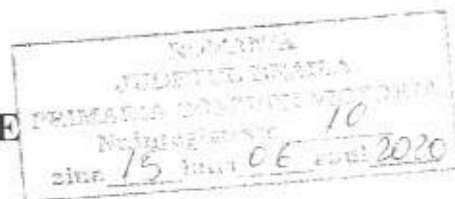 ROMANIA
JUDETUL BRAILA
E PRIMARIA COMUNEI VICTORIA
10
ziua 15 luna 06 anul 2020